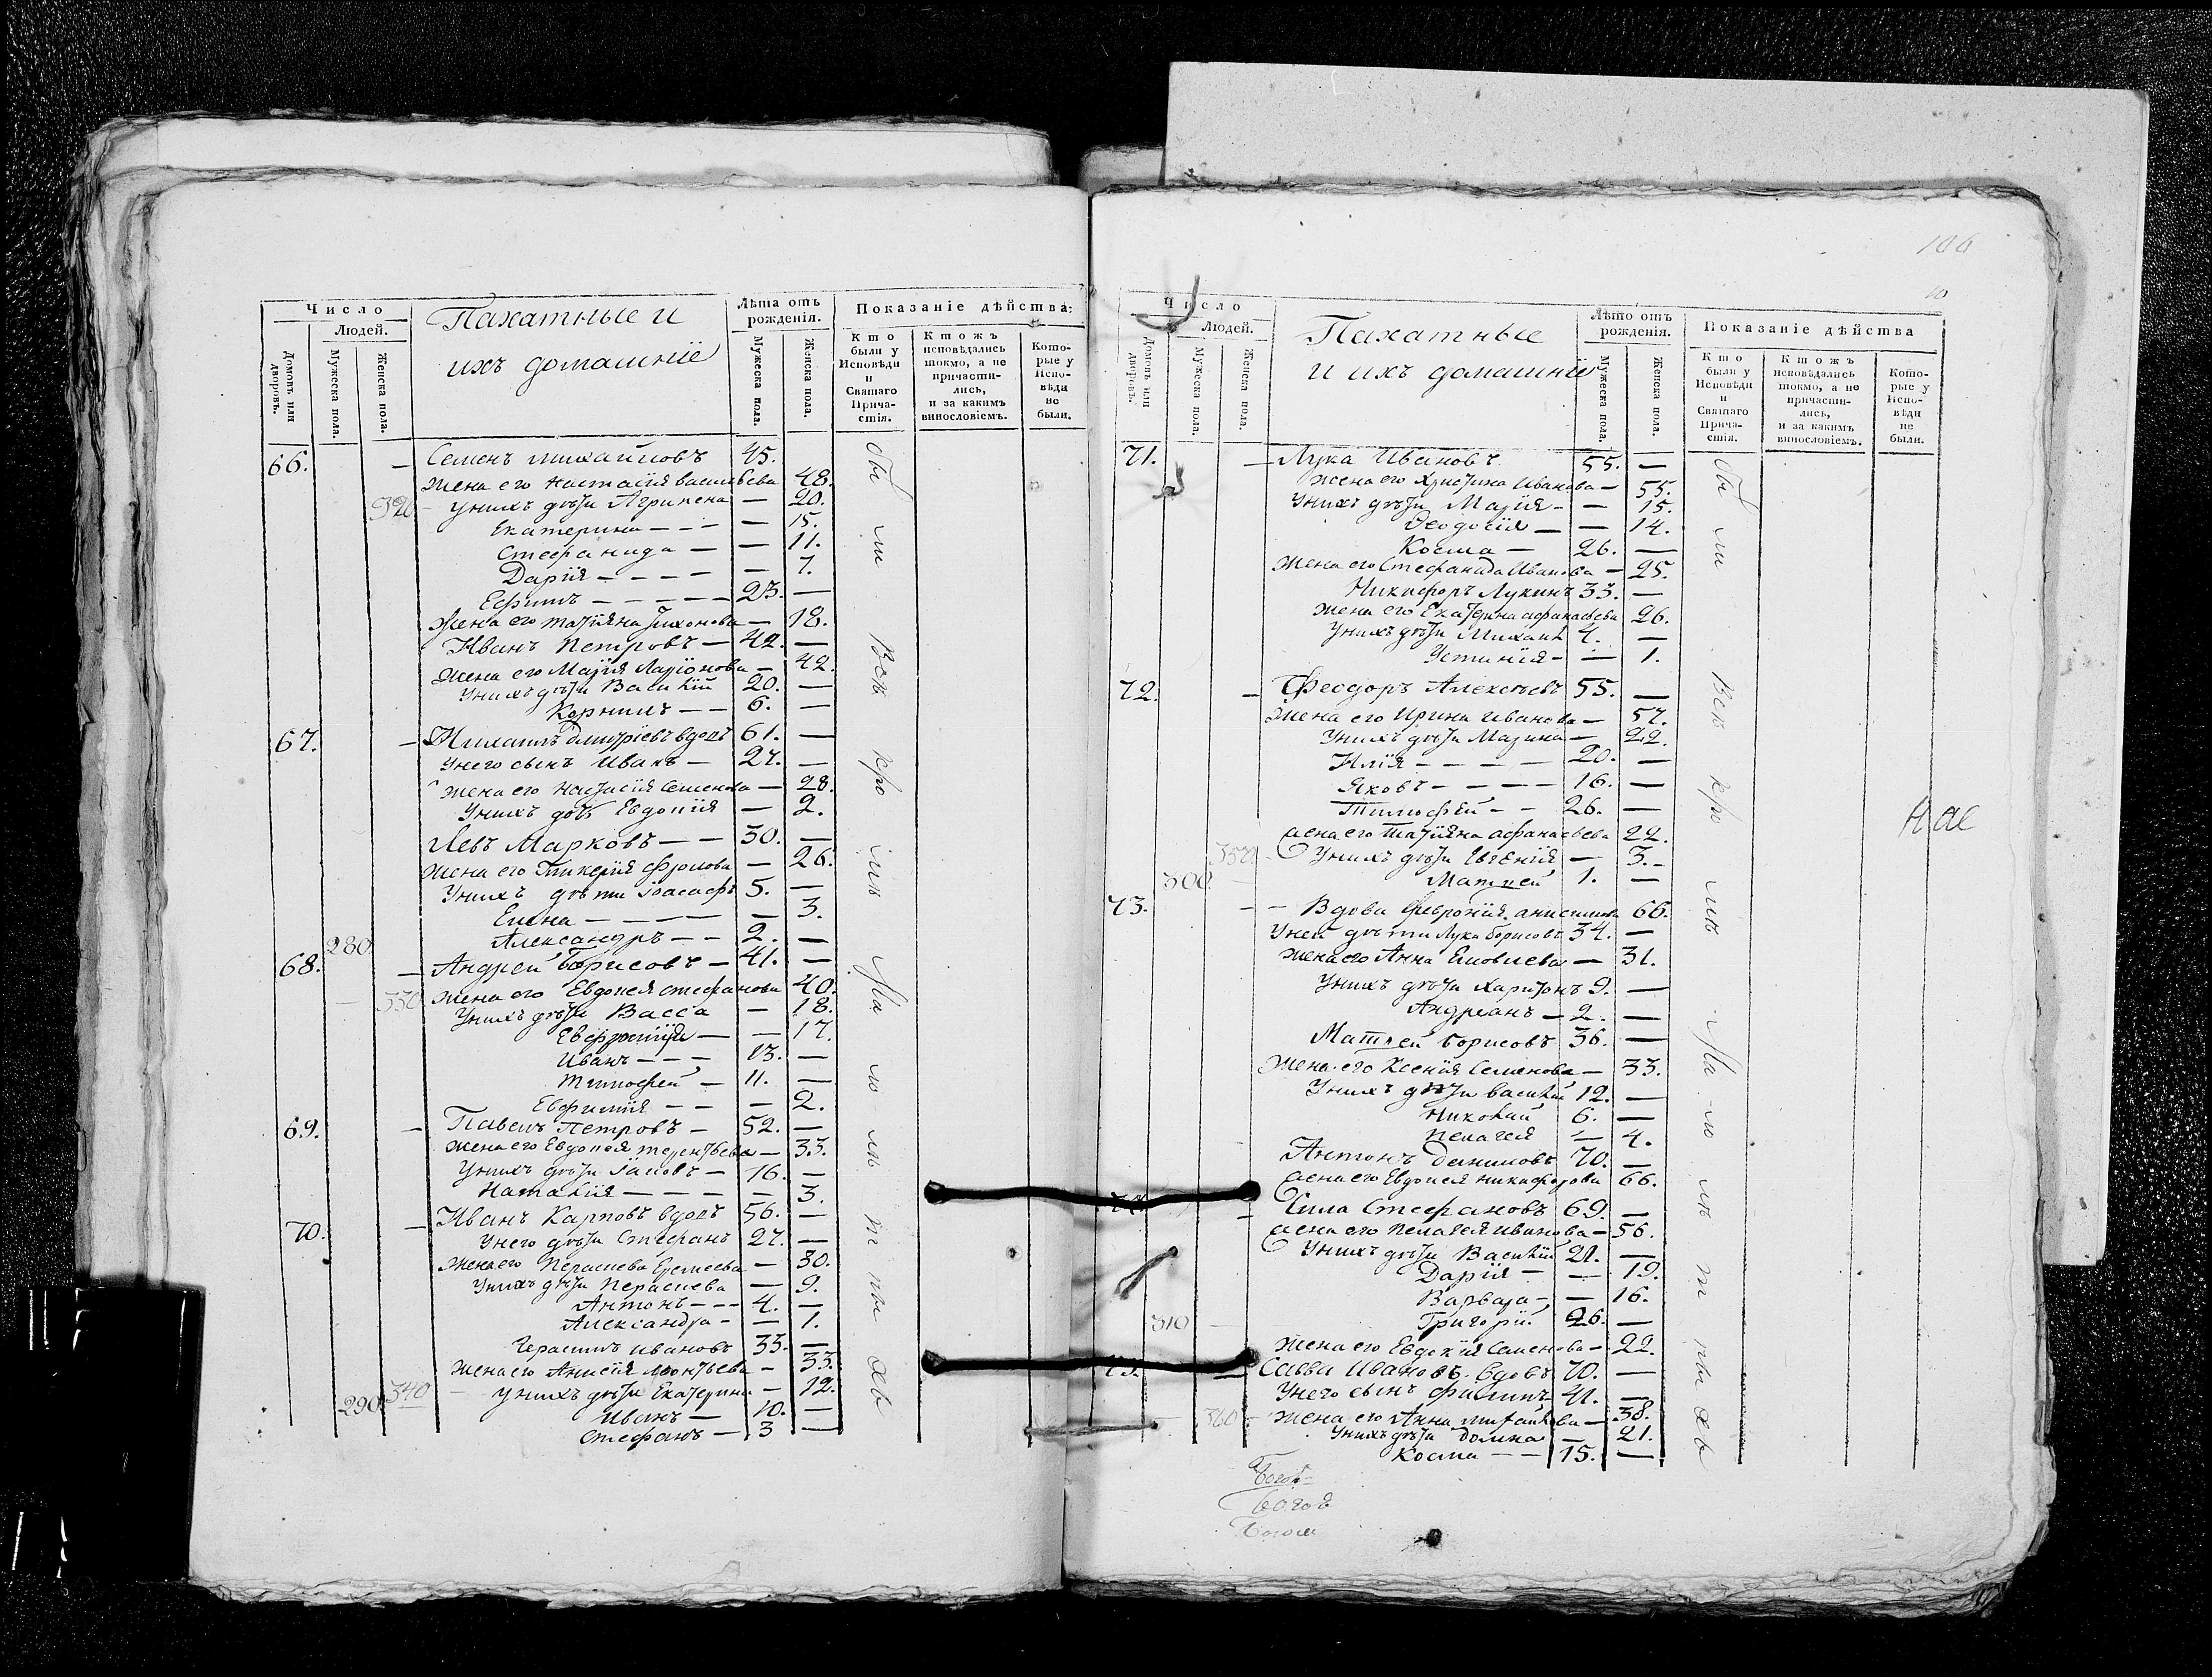 Число
Людей.
Домовъ или дворовъ.
Мужеска пола.
Женска пола.
Пахатные и
ихъ домашнїе
Лѣта отъ рожденія.
Мужеска пола.
Женска пола.
Показаніе дѣйства:
Кто были у Исповѣди и Святаго Причастія.
Ктожъ исповѣдались токмо, а не причастились, и за какимъ винословіемъ.
Которые у Исповѣди не были.
66. — Семенъ михайловъ 45.
жена его настасїя васильева 48.
320 — Унихъ дѣти Агрипена — 20.
Екатерина — — — — 15.
Стефанида — — 11.
Дарїя — — — — — 7.
Ефимъ — — — — — 23. —
Жена его татїяна тихонова — 18.
Иванъ Петровъ — 42. —
жена его Марїя Ларїонова — 42.
Унихъ дѣти Василїй 20. —
Корнилъ — — 6. —
67. — Михаилъ Дмитрїевъ вдовъ 61. —
Унего сынъ Иванъ — 27. —
жена его настасїя Семенова — 28.
Унихъ дочь Евдокїя — 2.
Левъ Марковъ — — 30. —
жена его Гликерїя Фролова — 26.
Унихъ дѣти Iоасафъ 5. —
Елена — — — — — 3.
280 Александръ — — 2. —
68. — Андрей Борисовъ — 41. —
330 жена его Евдокея стефанова 40.
Унихъ дѣти Васса — 18.
— — 17.
Иванъ — — — 13. —
Тимофей — 11. —
Евфимїя — — — 2.
69. — Павелъ Петровъ — 52. —
жена его Евдокея терентьева — 33.
Унихъ дѣти — 16. —
Наталїя — — — — — 3.
70. — Иванъ Карповъ вдовъ 56. —
Унего дѣти Стефанъ 27. —
жена его Пераскева Еремеева — 30.
Унихъ дѣти Пераскева — 9.
Антонъ — — — 4. —
Александра — — 1.
Герасимъ ивановъ 33. —
жена его Анисїя леонтьева — 33.
340 — унихъ дѣти Екатерина — 12.
290 Иванъ — 10. —
Стефанъ — 3 —
бы ли Всѣ кро мѣ ма ло лѣ т ны хъ
106
Число
Людей.
Домовъ или дворовъ.
Мужеска пола.
Женска пола.
Пахатные
и ихъ домашнїе
Лѣто отъ рожденія.
Мужеска пола.
Женска пола.
Показаніе дѣйства
Кто были у Исповѣди и Святаго Причастія.
Ктожъ исповѣдались токмо, а не причастились, и за какимъ винословіемъ.
Которые у Исповѣди не были.
71. — Лука Ивановъ 55. —
жена его Христина Иванова — 55.
Унихъ дѣти Марїя — — 15.
Феодосїя — — 14.
Косма — 26. —
жена его Стефанида Иванова — 25.
Никифоръ Лукинъ 33. —
жена его Екатерина афанасьева 26.
Унихъ дѣти Михаил 4. —
Устинїя — — 1.
72. — Феодоръ Алексѣевъ 55. —
жена его Ирина иванова — 57.
Унихъ дѣти — 22.
Илїя — — — — 20. —
Яковъ — — — — 16. —
Тимофей — — 26. —
жена его татїяна афанасьева 22.
350 — Унихъ дѣти Евгенїя — 3. —
300 — Матвей 1. —
73. — Вдова Февронїя анисимова 66.
Уней дѣти Лука борисовъ 34. —
жена его Анна — 31.
Унихъ дѣти харитонъ 9. —
Андреанъ — 2. —
Матвей борисовъ 36. —
жена его Ксенїя Семенова — 33.
Унихъ дѣти василїй 12. —
Николай 6. —
Пелагея — 4.
Антонъ Даниловъ 70. —
жена его Евдокея никифорова 66.
74. — Сила Стефановъ 69. —
жена его пелагея иванова — 56.
Унихъ дѣти Василїй 21. —
Дарїя — — 19.
Варвара — — 16.
310 — Григорїй 26. —
жена его Евдокїя Семенова — 22.
75. — Савва Ивановъ вдовъ 70. —
Унего сынъ филипъ 41. —
360 — жена его Анна михайлова — 38.
Унихъ дѣти домна — 21.
Косма — — 15. —
бы ли Всѣ кро мѣ ма ло лѣ т ны хъ